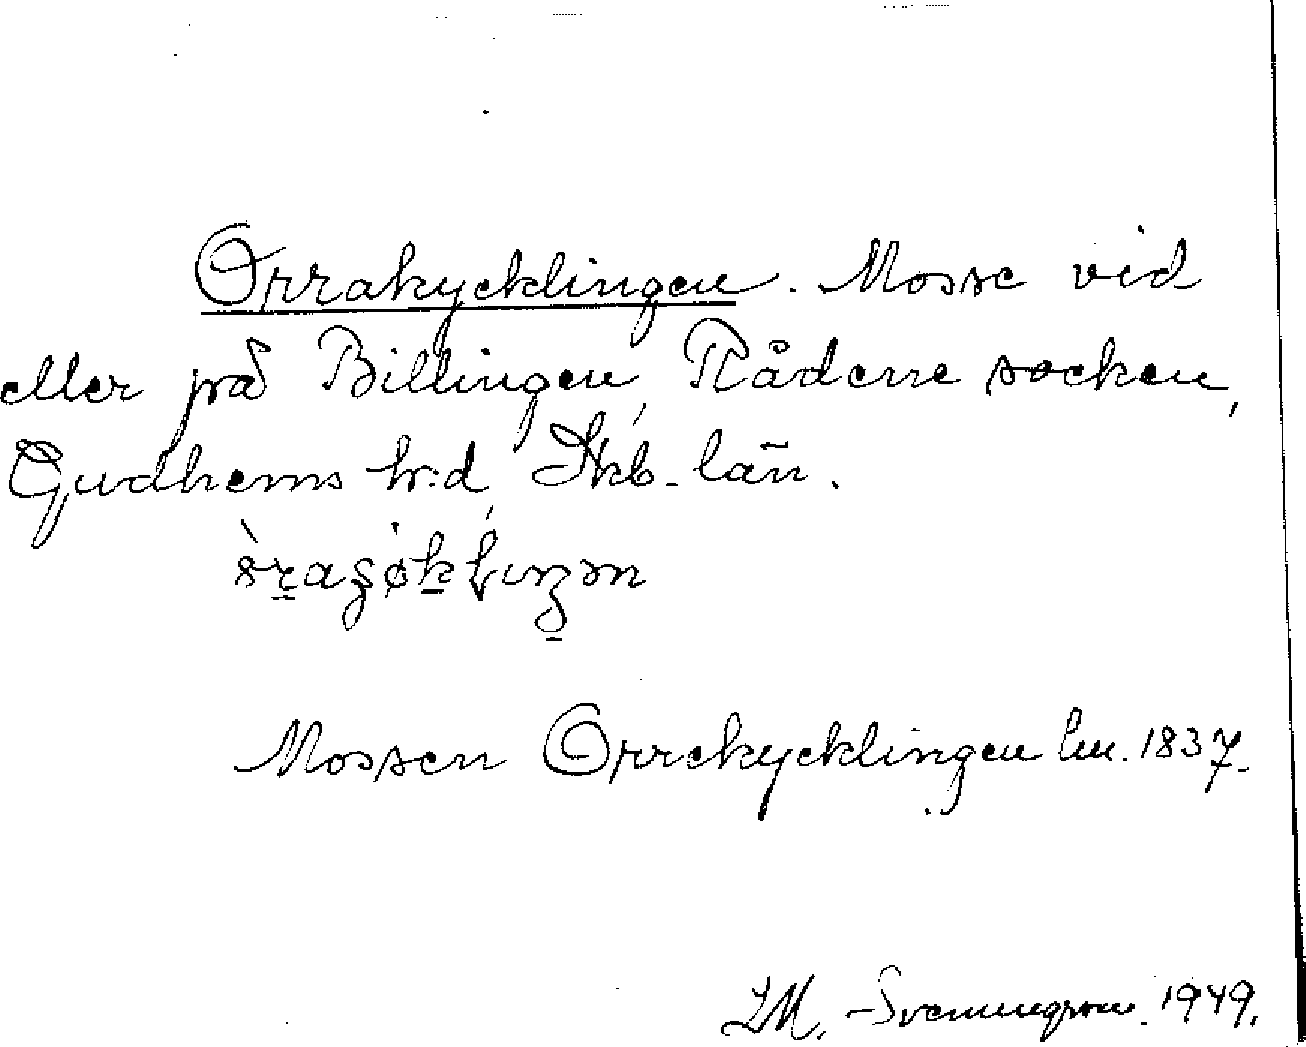 Orrakycklingen. Mosse vid
eller på Billingen, Rådene socken,
Gudhems h:d, Skb. län.
Mossen Orrekycklingen lm. 1837.
LM. Svenungsson. 1949.